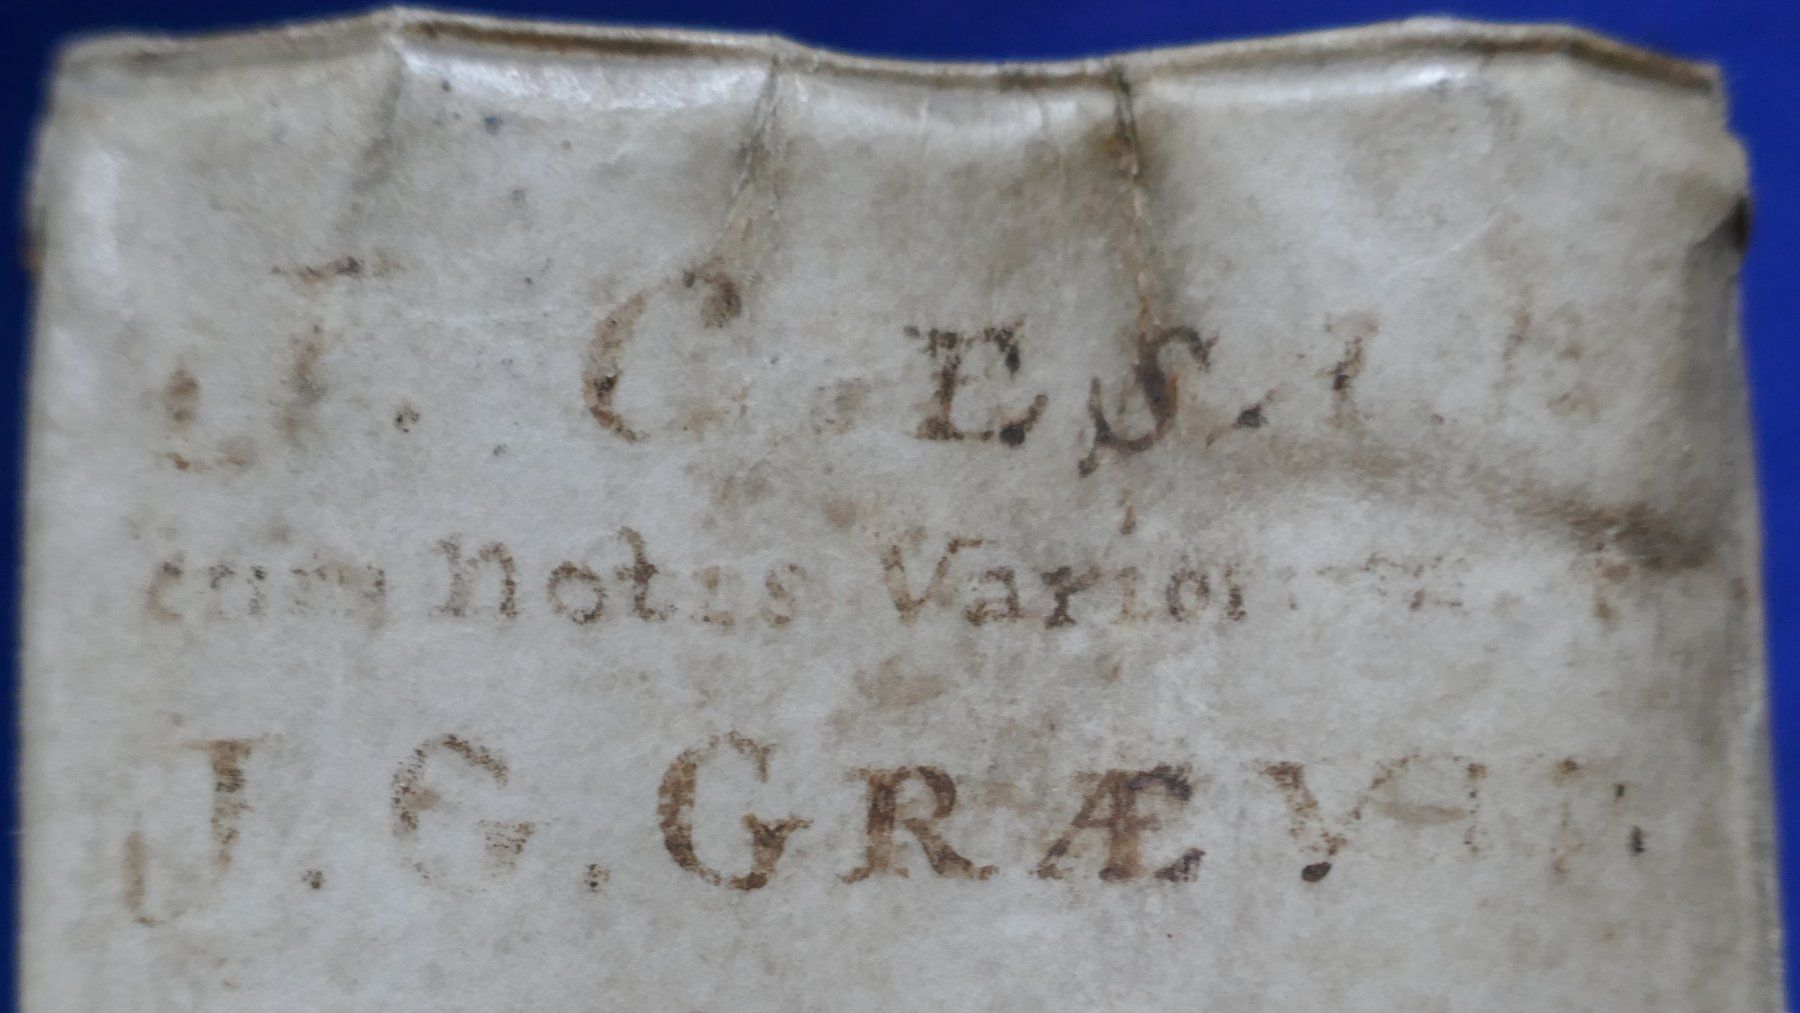 J. CÆSAR
cum Notis Varior
J. G. GRÆVII